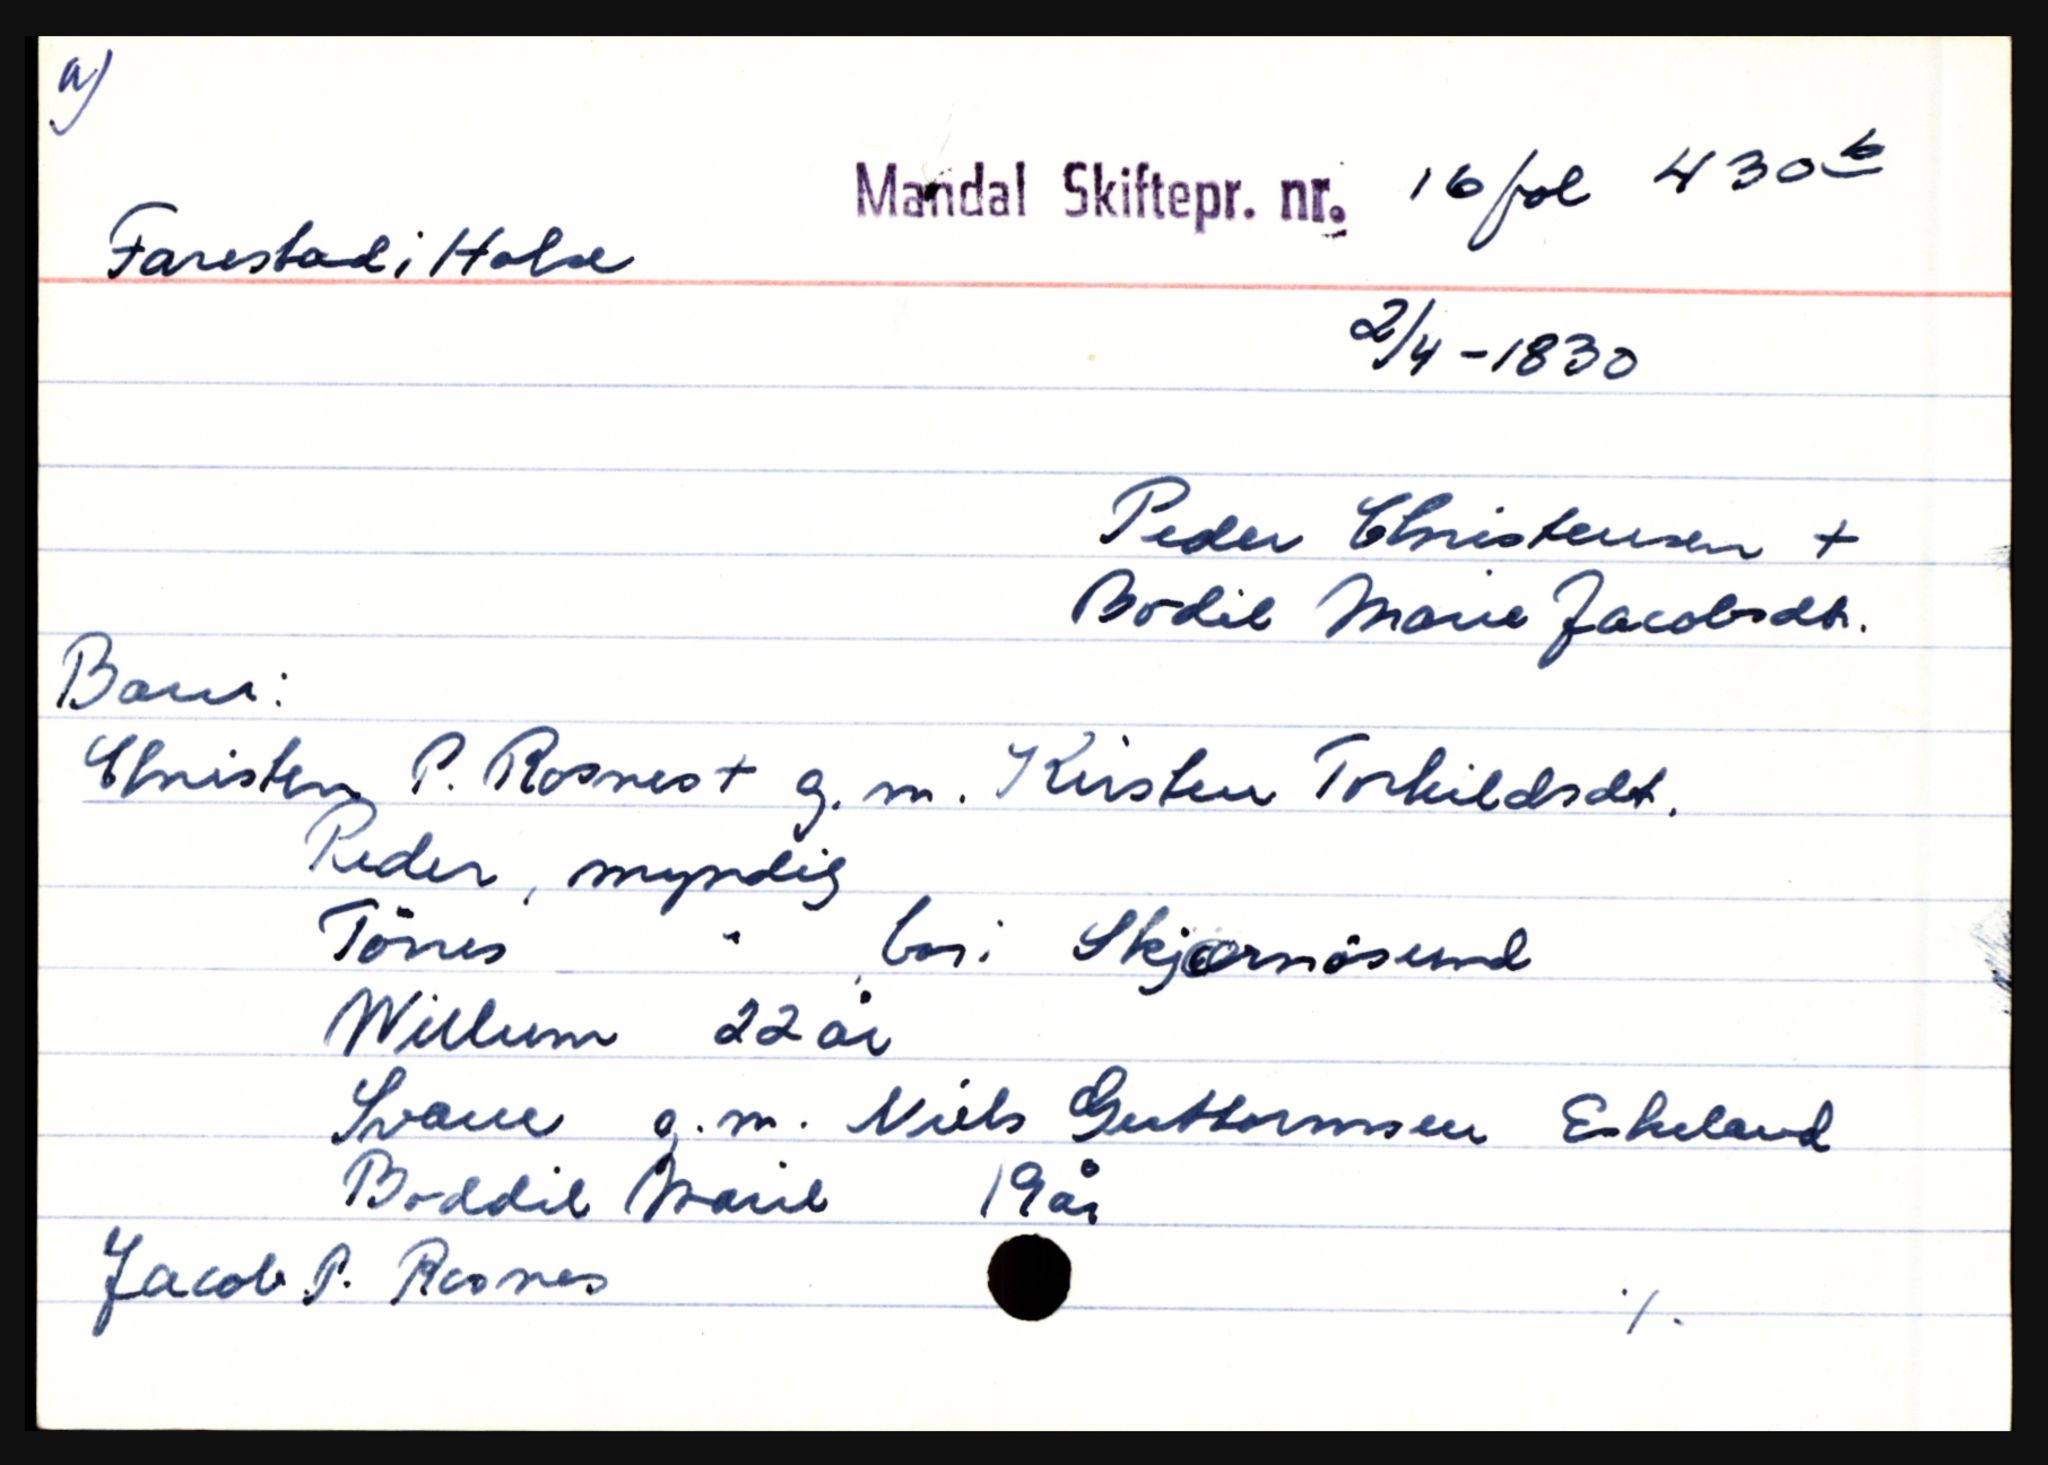 a)
Mandal Skiftepr. nr. 16 fol 430b
Farestad i Halse
2/4 - 1830
Peder Christensen +
Bodil Marie Jacobsdt.
Barn:
Christen P. Rosnes + g. m. Kirsten Torkildsdt.
Peder, myndig
Tönnes " , bor i Skjærnösund
Willum 22 år
Svane g. m. Niels Guttormsen Eskeland
Boddil Marie 19 år
Jacob P. Rosnes
./.